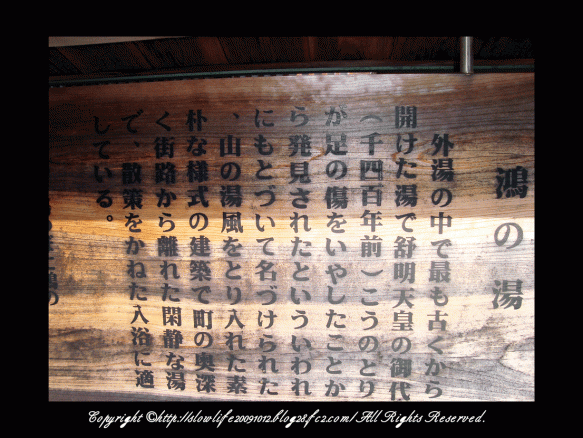 鴻の湯
外湯の中で最も古くから
開けた湯で舒明天皇の御代
（千四百年前）こうのとり
が足の傷をいやしたことか
ら発見されたといういわれ
にもとづいて名づけられた
、山の湯風をとり入れた素
朴な様式の建築で町の奥深
く街路から離れた閑静な湯
で、散策をかねた入浴に適
している。
Copyright ©http://slowlife20091012.blog28.fc2.com/ All Rights Reserved.